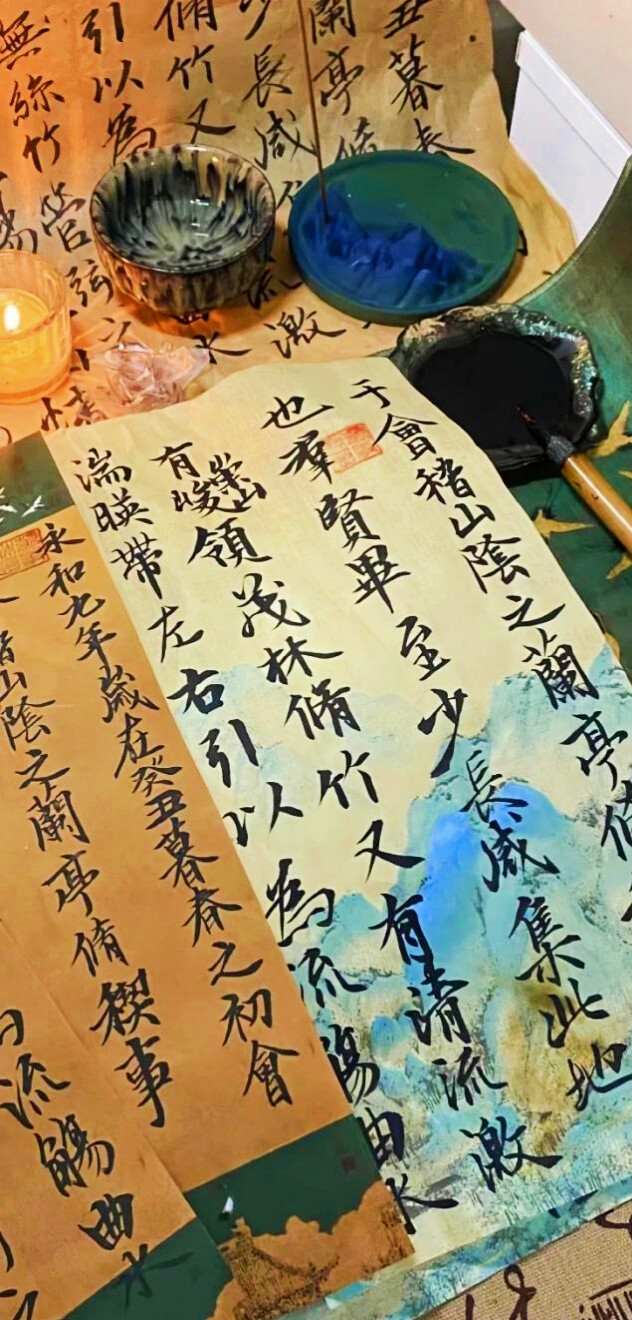 丑暮春
蘭亭脩
少長咸
激
脩竹又
引以為
水
無絲竹管弦之
于會稽山陰之蘭亭脩
也羣賢畢至少長咸集此地
有崇山峻領茂林脩竹又有清流激
湍暎帶左右引以為流觴曲水
永和九年歲在癸丑暮春之初會
稽山陰之蘭亭脩稧事
流觴曲水